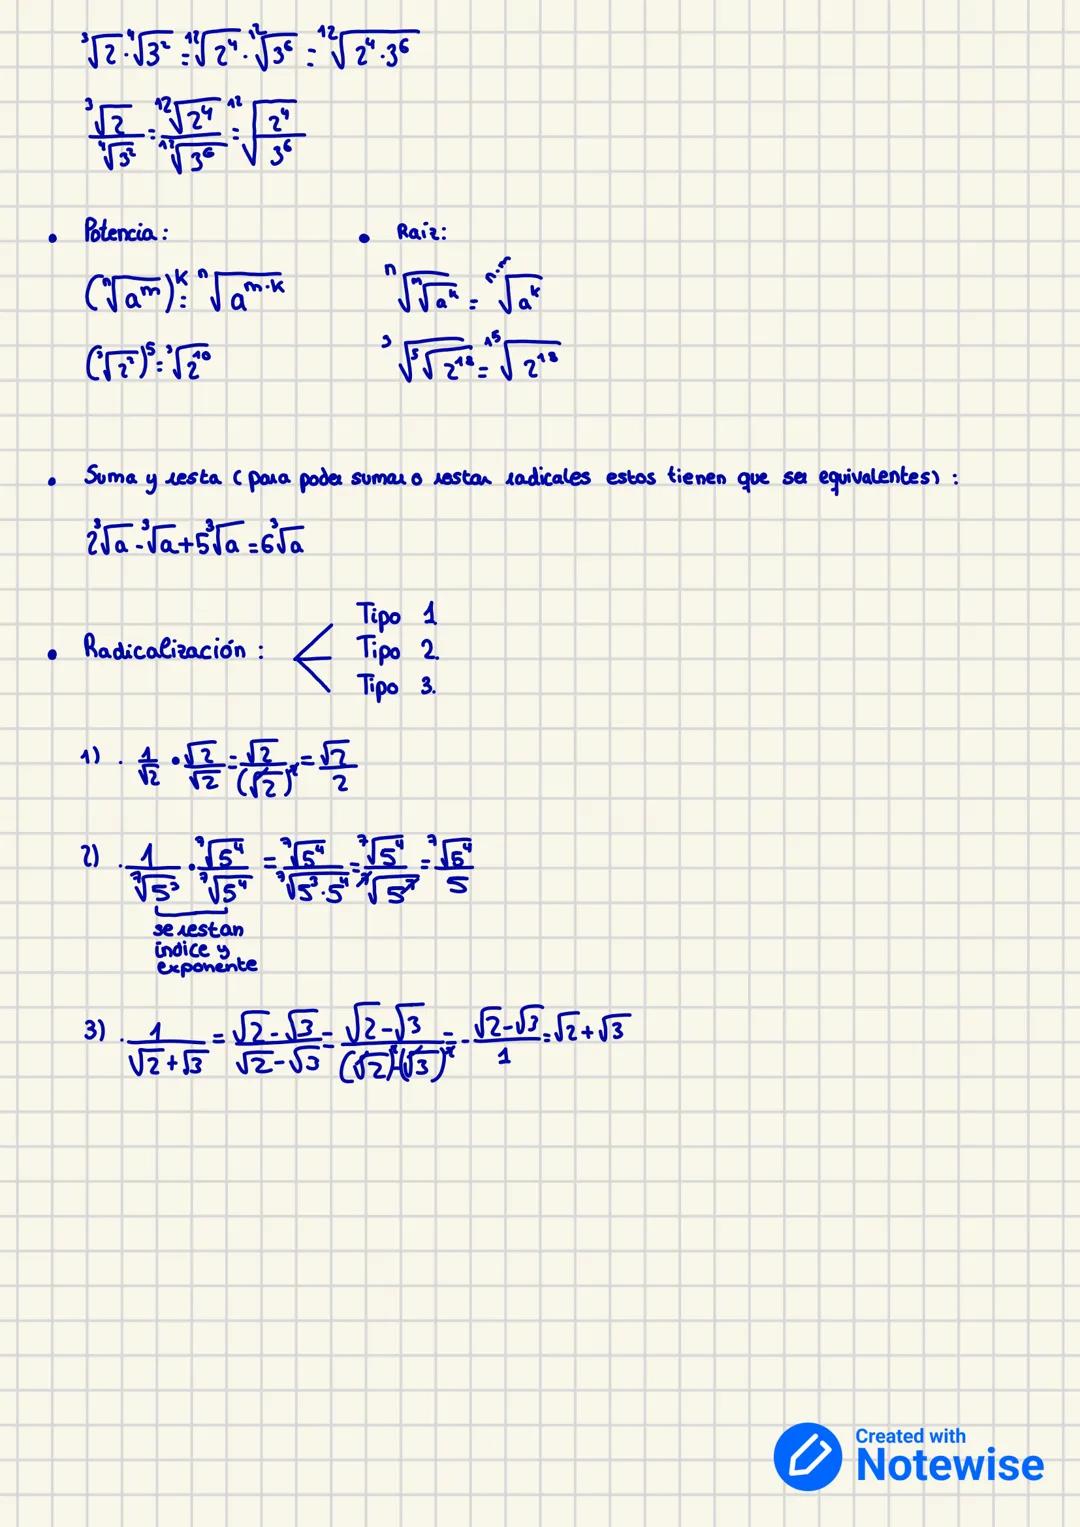 ∛2·∜3² = ¹²√2⁴·¹²√3⁶ = ¹²√(2⁴·3⁶)
∛2/∜3² = ¹²√2⁴/¹²√3⁶ = ¹²√(2⁴/3⁶)
• Potencia: • Raiz:
(ⁿ√aᵐ)ᵏ = ⁿ√a^(m·k) ⁿ√(ᵐ√aᵏ) = ⁿ·ᵐ√aᵏ
(∛2²)⁵ = ∛2¹⁰ ³√(⁵√2¹⁸) = ¹⁵√2¹⁸
• Suma y resta (para poder sumar o restar radicales estos tienen que ser equivalentes) :
2∛a - ∛a + 5∛a = 6∛a
• Radicalización :
Tipo 1
Tipo 2.
Tipo 3.
1) . 1/√2 · √2/√2 = √2/(√2)² = √2/2
2) . 1/⁷√5³ · ⁷√5⁴/⁷√5⁴ = ⁷√5⁴/⁷√(5³·5⁴) = ⁷√5⁴/⁷√5⁷ = ⁷√5⁴/5
se restan
índice y
exponente
3) . 1/(√2+√3) = (√2-√3)/(√2-√3) = (√2-√3)/((√2)²-(√3)²) = -(√2-√3)/1 = √2+√3
Created with
Notewise